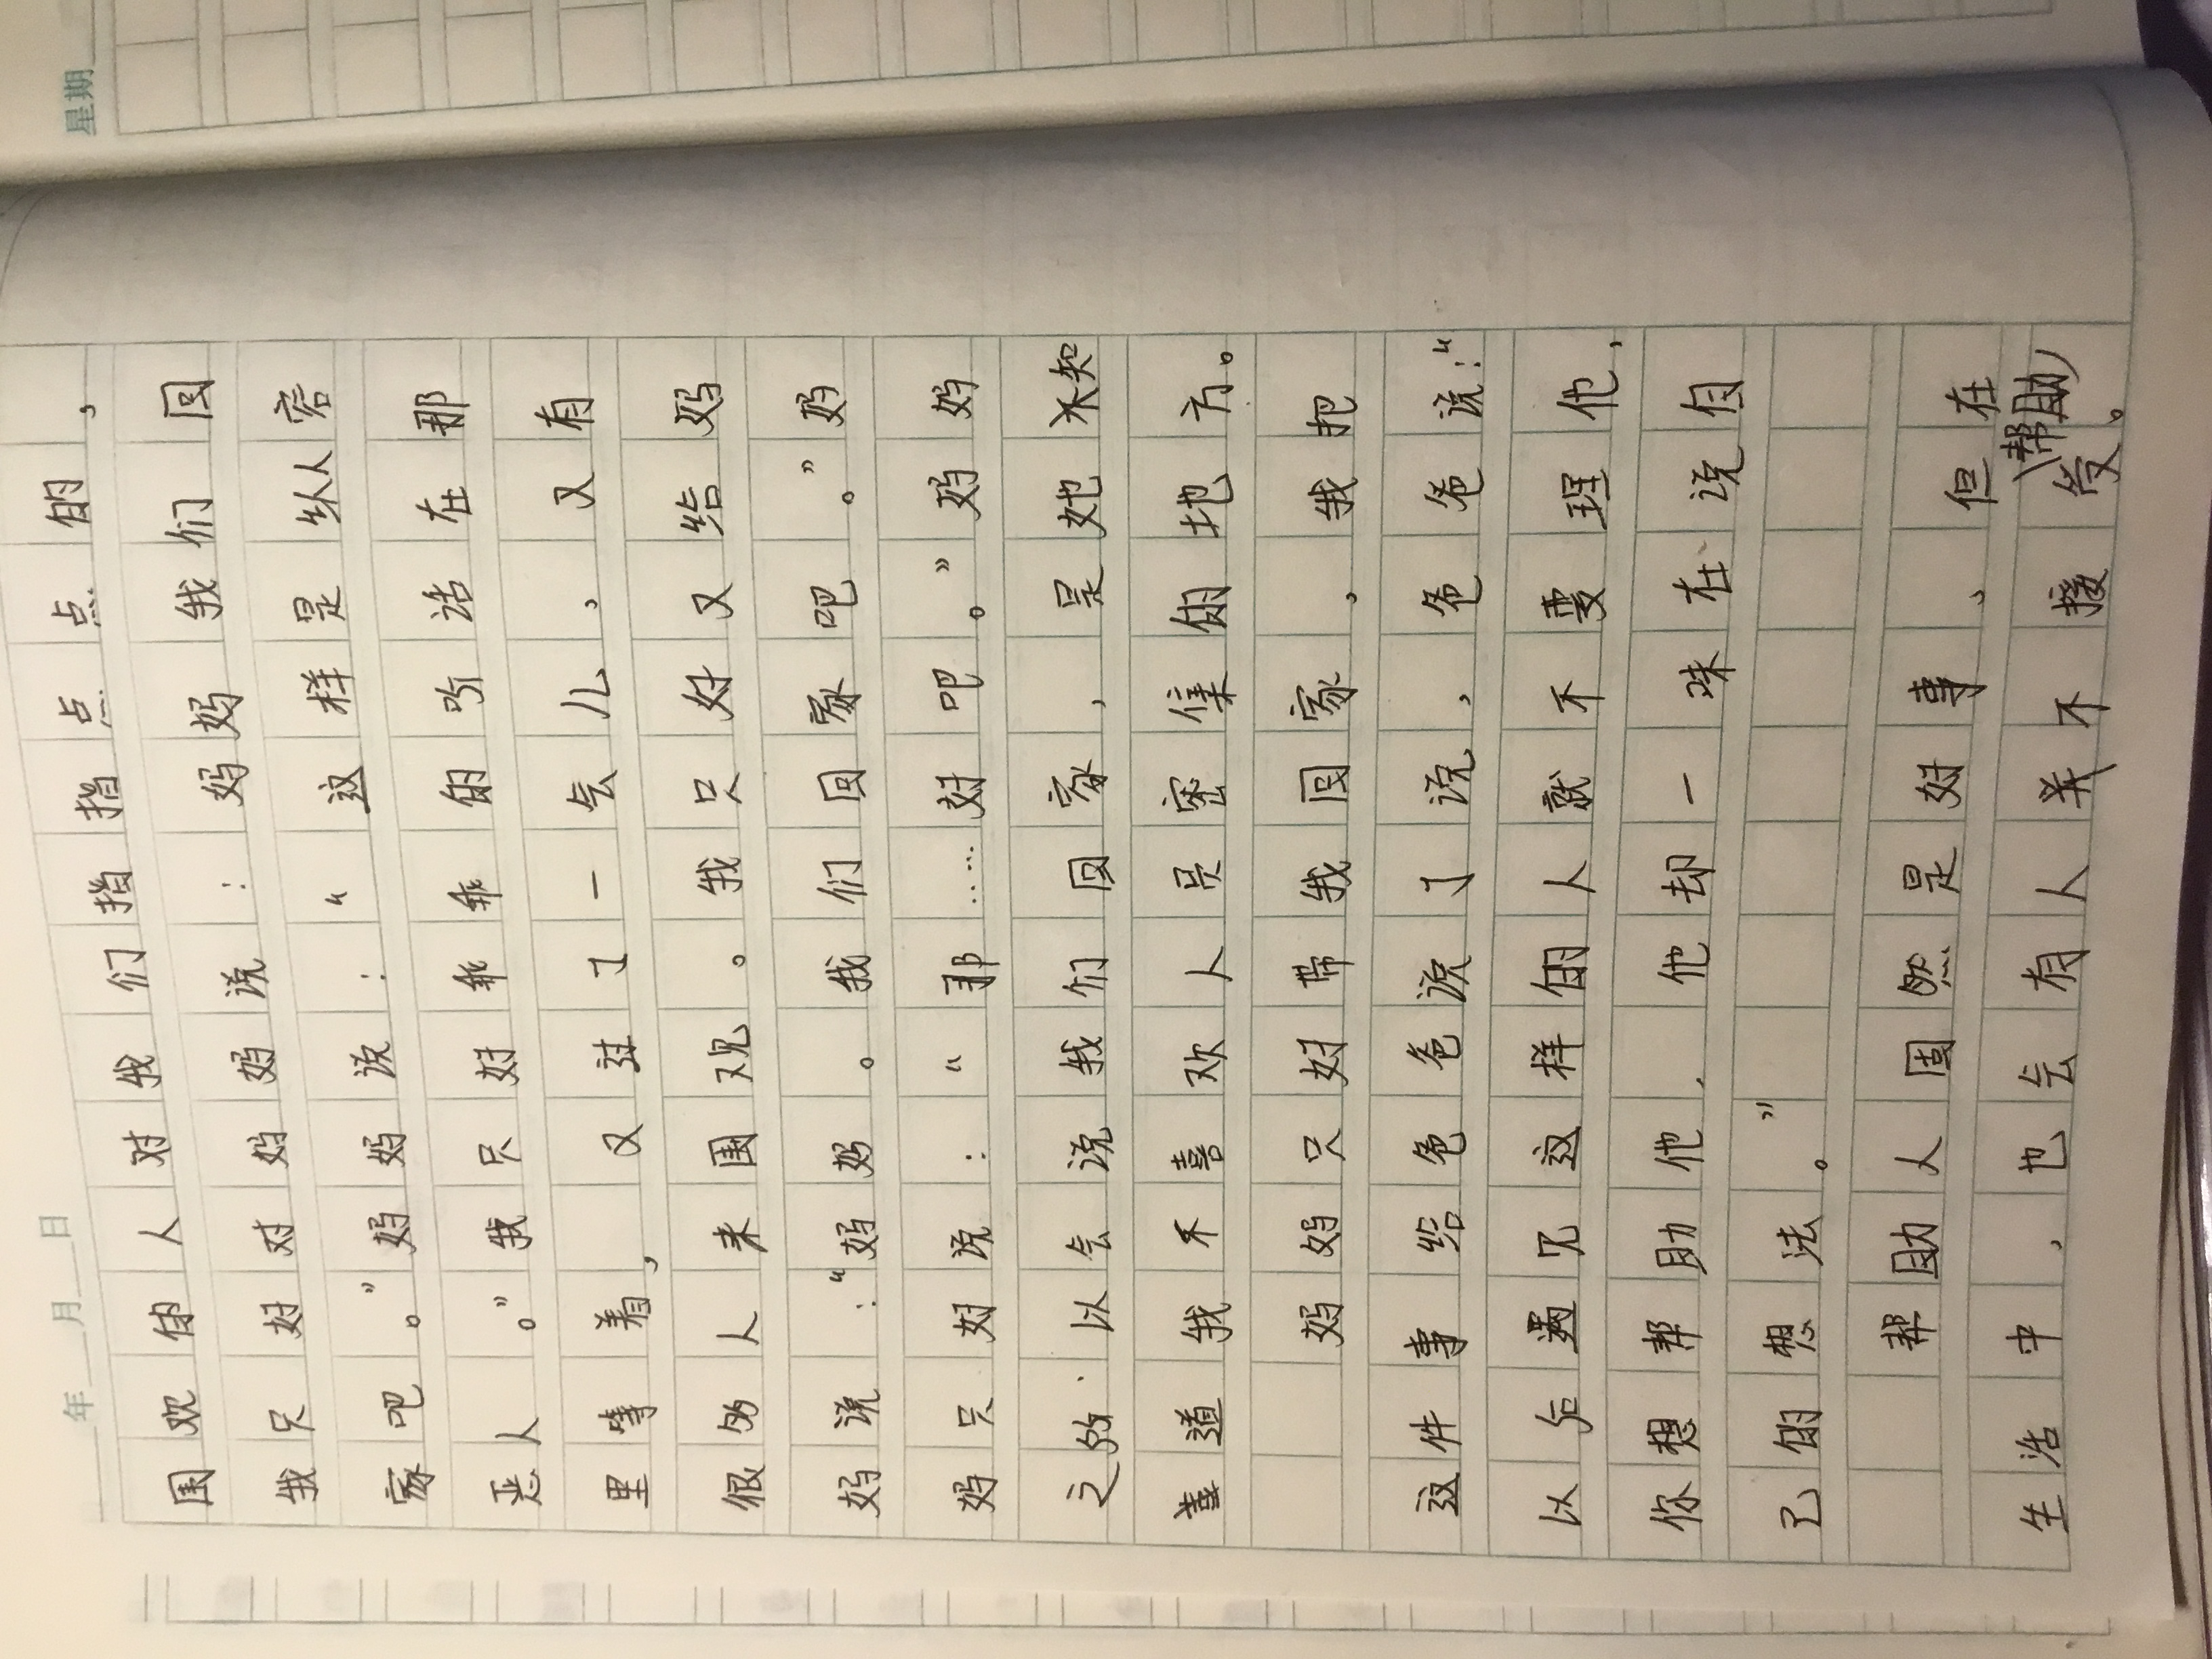 星期
年 月 日
围欢的人对我们指指点点的，
我只好对妈妈说：妈妈我们回
家吧。”妈妈说：“这样是纵容
恶人。”我只好乖乖的听话在那
里等着，又过了一会儿，又有
很多人来围观。我只好又给妈
妈说：“妈妈。我们回家吧。”妈
妈只好说：“那……好吧。”妈妈
之所以会说我们回家，是她不知
道我不喜欢人员密集的地方。
妈妈只好带我回家，我把
这件事给爸爸说了说，爸爸说：“
以后遇见这样的人就不要理他，
你想帮助他，他却一味在说自
己的想法。”
帮助人固然是好事，但在
生活中，也会有人并不接受帮助。